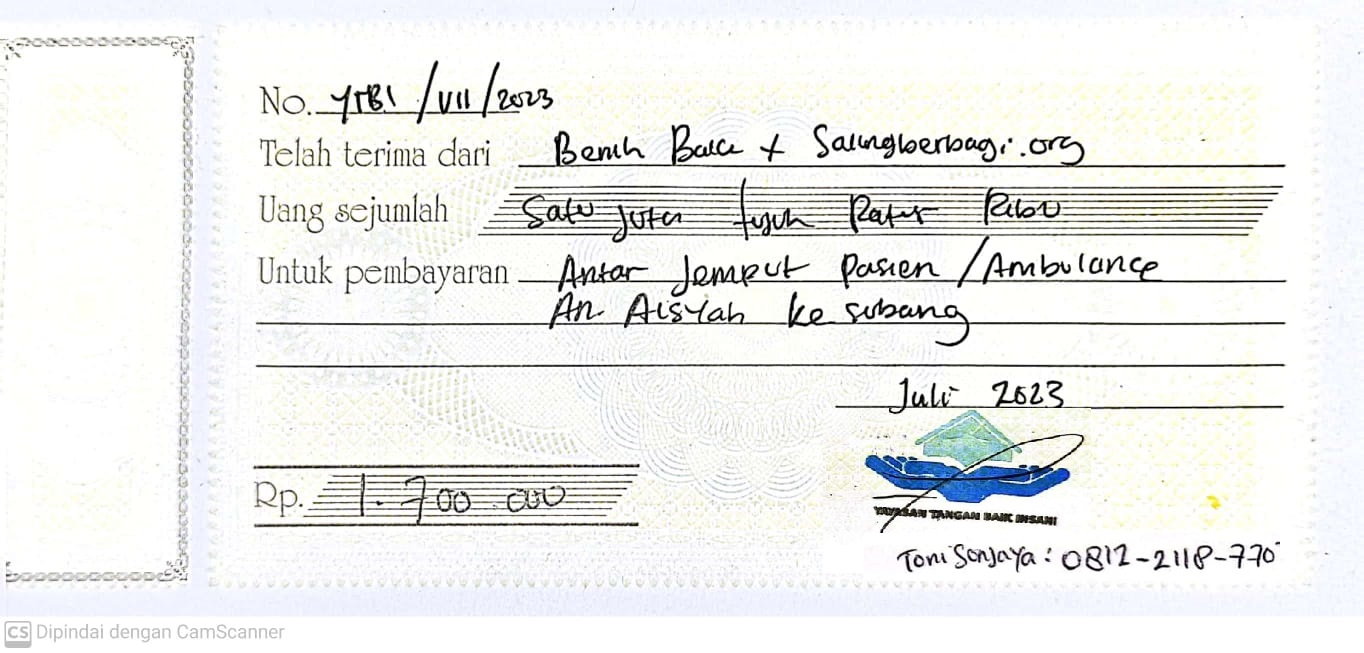 No. YTBI /VII/2023
Telah terima dari Benih Baik + Saungberbagi.org
Uang sejumlah Satu Juta tujuh Ratus Ribu
Untuk pembayaran Antar Jemput Pasien /Ambulance
An. Aisyah ke subang
Juli 2023
Rp. 1.700.000
YAYASAN TANGAN BAIK INSANI
Toni Sonjaya : 0812-2118-770
CS Dipindai dengan CamScanner